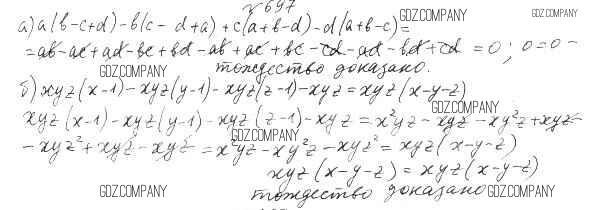 № 697
а) a(b-c+d)-b(c-d+a)+c(a+b-d)-d(a+b-c)= GDZ.COMPANY
=ab-ac+ad-bc+bd-ab+ac+bc-cd-ad-bd+cd=0; 0=0 -
GDZ.COMPANY тождество доказано.
б) xyz(x-1)-xyz(y-1)-xyz(z-1)-xyz=xyz(x-y-z)
GDZ.COMPANY
xyz(x-1)-xyz(y-1)-xyz(z-1)-xyz=x²yz-xyz-xy²z+xyz-
GDZ.COMPANY
-xyz²+xyz-xyz=x²yz-xy²z-xyz²=xyz(x-y-z)
xyz(x-y-z)=xyz(x-y-z)
GDZ.COMPANY тождество доказано GDZ.COMPANY